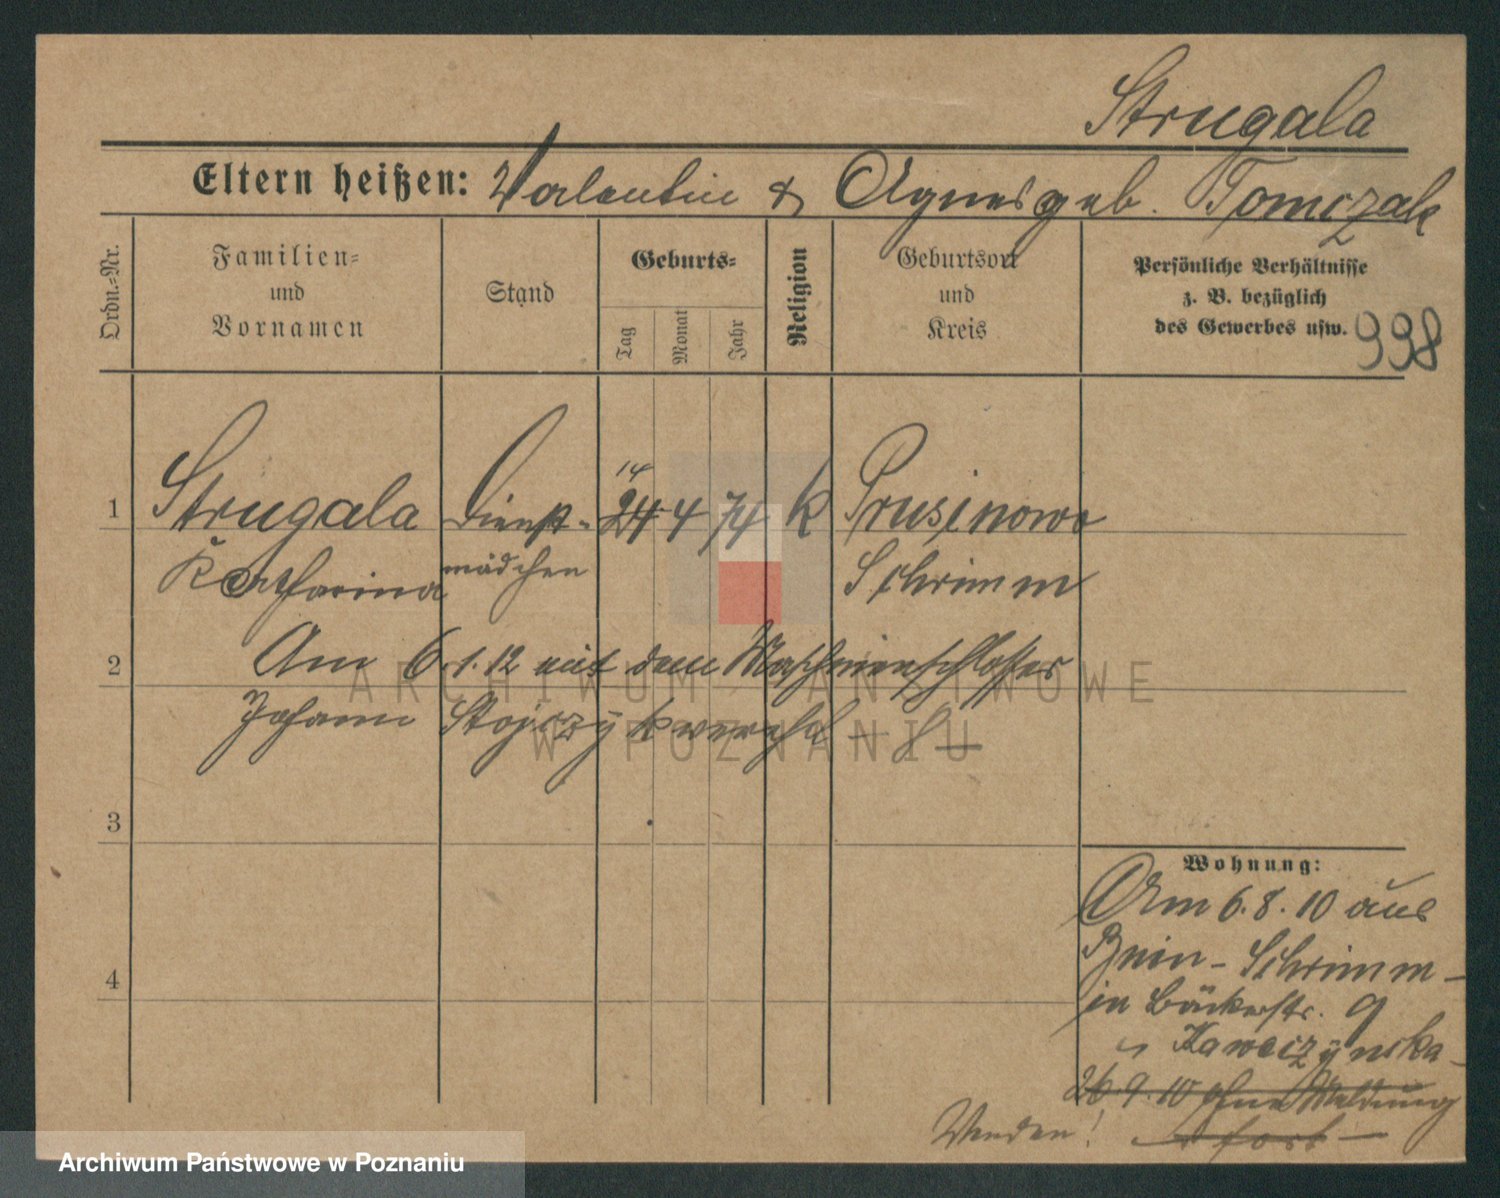 Strugala
Eltern heißen: Valentin & Agnes geb. Tomczak
Ordn.-Nr.
Familien-
und
Vornamen
Stand
Geburts-
Tag
Monat
Jahr
Religion
Geburtsort
und
Kreis
Persönliche Verhältnisse
z. B. bezüglich
des Gewerbes usw.
998
14
1 Strugala Dienst- 24 4 74 k Prusinowo
Katharina mädchen Schrimm
2 Am 6.1.12 mit dem Maschinenschlosser
Johann Stojczÿk verehl
3
4
Wohnung:
Am 6.8.10 aus
Bnin - Schrimm -
in Bäckerstr. 9
Kawczÿnska
26.9.10 ohne Meldung
fort
Wenden!
ARCHIWUM PAŃSTWOWE
W POZNANIU
Archiwum Państwowe w Poznaniu